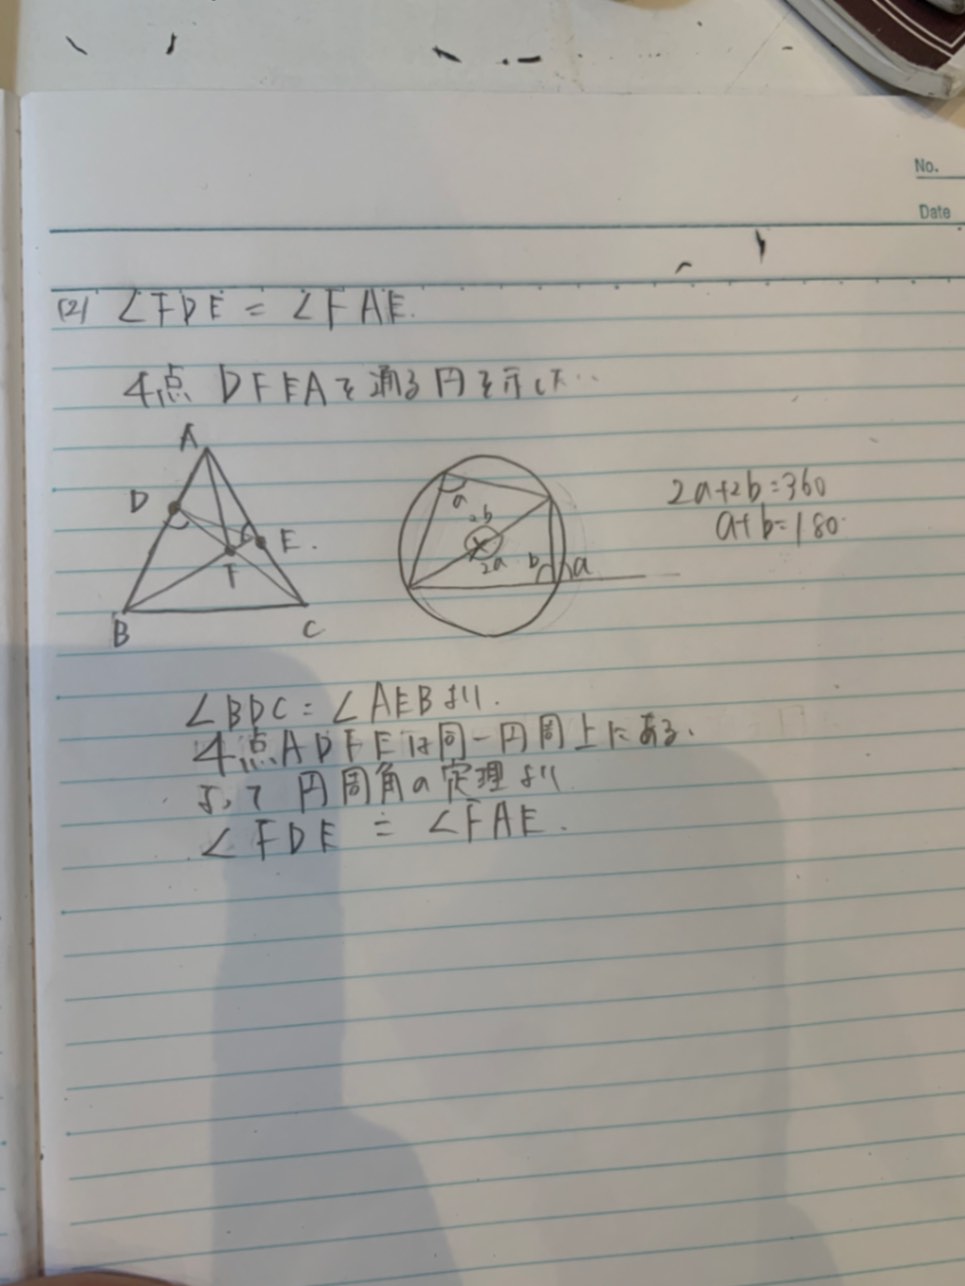 No.
Date
(2) ∠FDE = ∠FAE.
4点 DFEAを通る円を示した..
A
D
E.
F
B
C
a
2b
2a
b
a
2a+2b=360
a+b=180
∠BDC = ∠AEBより.
4点ADFEは同一円周上にある.
よって 円周角の定理より
∠FDE = ∠FAE.